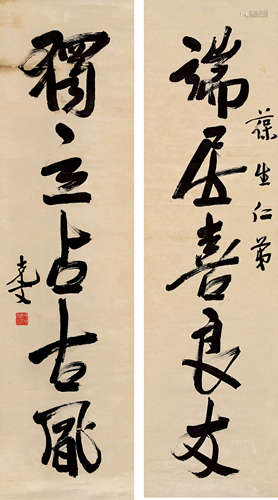 葆生仁弟
端居喜良友
獨立占古風
克文